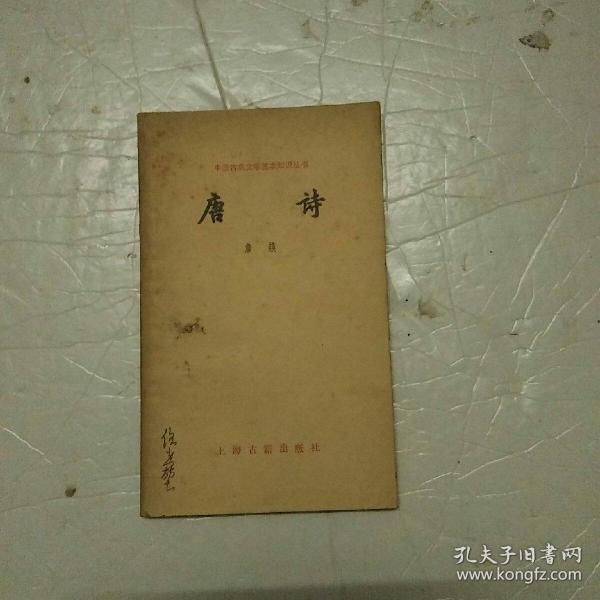 中国古典文学基本知识丛书
唐 詩
詹 鍈
上海古籍出版社
孔夫子旧书网
www.kongfz.com